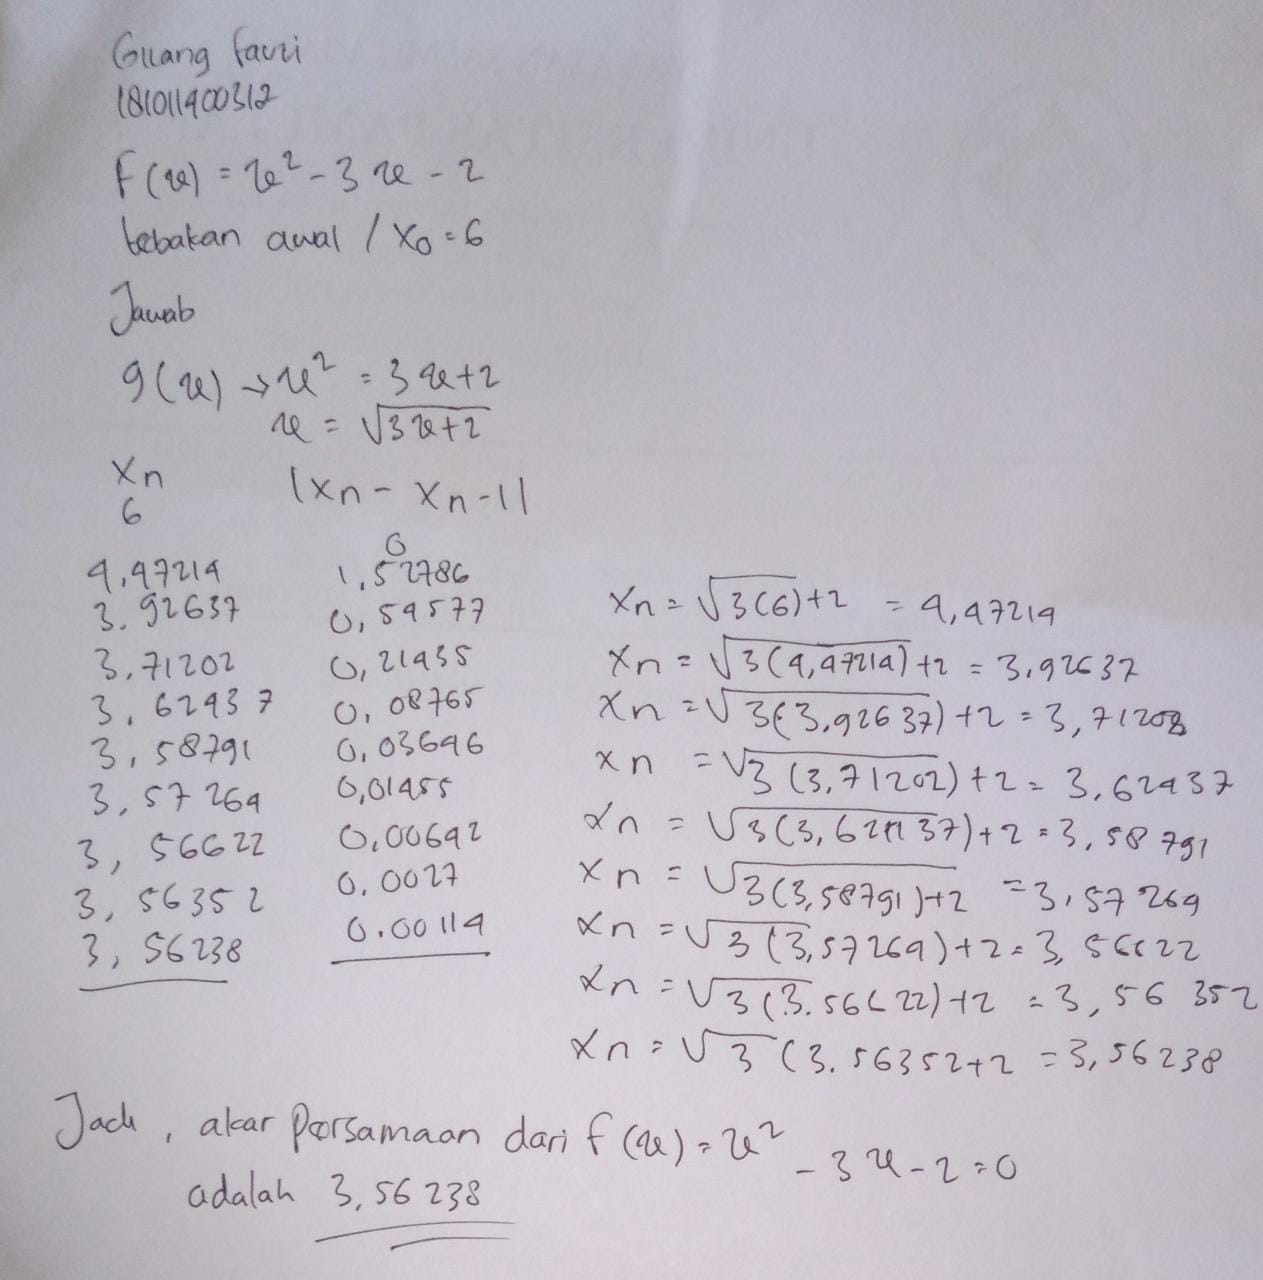 Giliang fauzi
181011400312
F(x) = x² - 3x - 2
tebakan awal / X0 = 6
Jawab
g(x) → x² = 3x+2
x = √3x+2
Xn |Xn - Xn-1|
6 0
4,47214 1,52786
3.92637 0,54577
3,71202 0,21435
3,62437 0,08765
3,58791 0,03646
3,57264 0,01455
3,56622 0,00642
3,56352 0.0027
3,56238 0.00114
Xn = √3(6)+2 = 4,47214
Xn = √3(4,47214)+2 = 3.92637
Xn = √3(3.92637)+2 = 3,71202
Xn = √3(3,71202)+2 = 3,62437
Xn = √3(3,62437)+2 = 3,58791
Xn = √3(3,58791)+2 = 3,57264
Xn = √3(3,57264)+2 = 3,56622
Xn = √3(3.56622)+2 = 3,56352
Xn = √3(3.56352+2 = 3,56238
Jadi, akar Persamaan dari f(x) = x² - 3x - 2 = 0
adalah 3,56238